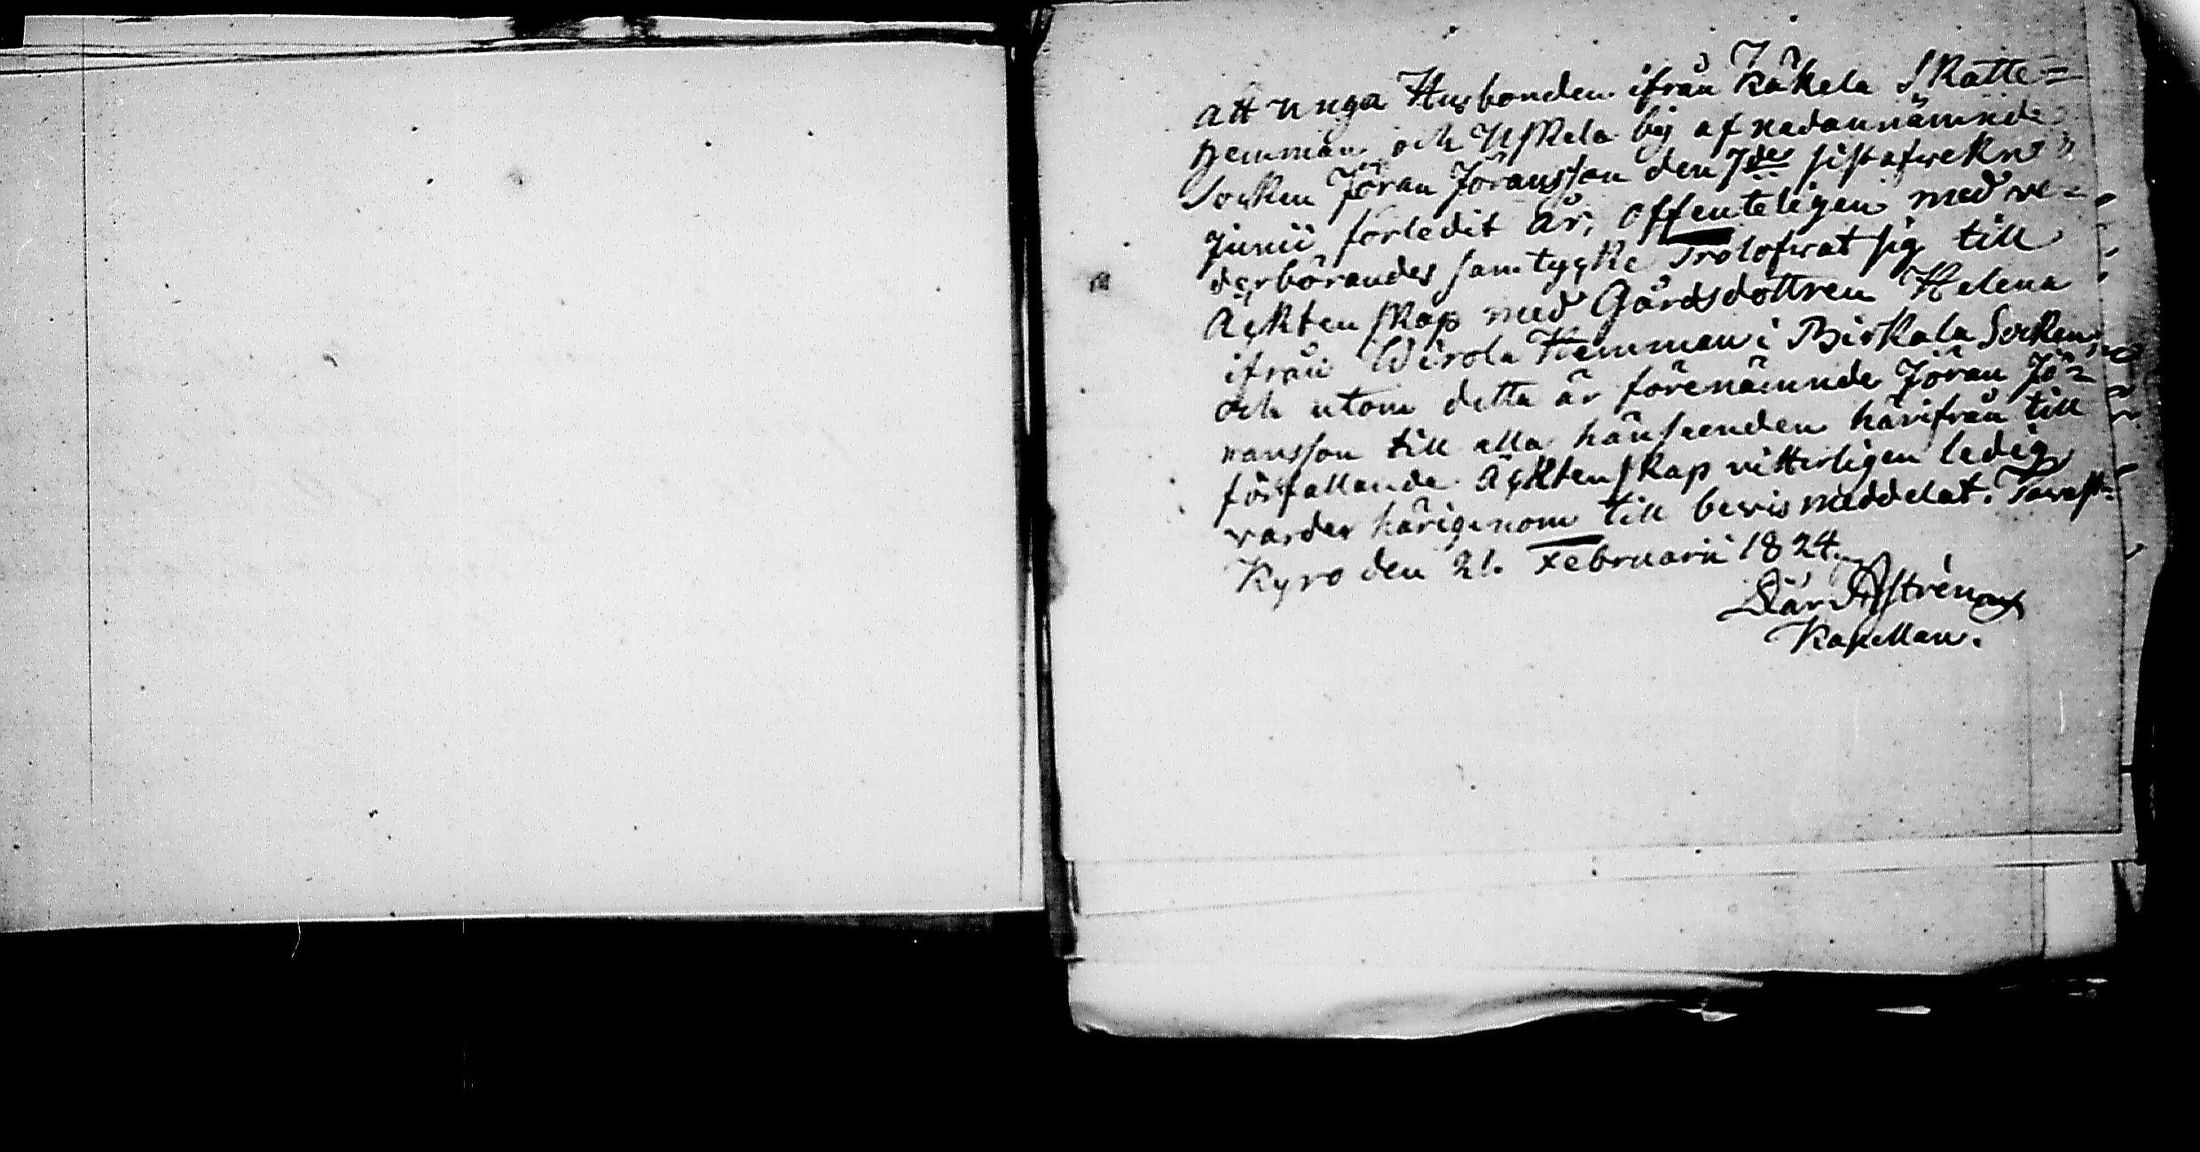 att unga Husbonden ifrån Räkela Skatte=
hemman och Uskela by af nedannämnde
Socken Jöran Jöransson den 7de sistafvekne
Junii förledit år, offenteligen med ve=
derbörandes samtygke Trolofvat sig till
Ägktenskap med Gårdsdottren Helena
ifrån Wirola Hemman i Birkala Socken,
och utom detta är förenämnde Jöran Jö=
ransson till alla hänseenden härifrån till
förfallande Ägktenskap vitterligen ledig
varder härigenom till bevis meddelat. Tavast=
Kyro den 21. Februarii 1824.
Åström
Kapellan.